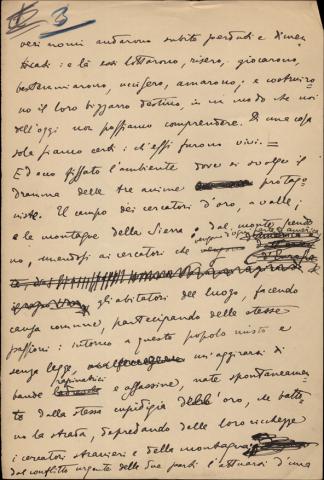 3
veri nomi andarono subito perduti e dimen
ticati: e là essi lottarono, risero, giocarono,
bestemmiarono, uccisero, amarono; e costruiro
no il loro bizzarro destino, in un modo che noi
dell'oggi non possiamo comprendere. Di una cosa
sola siamo certi: ch'essi furono vivi. —
Ed ecco fissato l'ambiente dove si svolge il
dramma delle tre anime protago
niste. Il campo dei cercatori d'oro, a valle;
e le montagne della Sierra: dal monte scendo
no, unendosi ai cercatori che
d'ogni parte d'America
gli abitatori del luogo, facendo
causa comune, partecipando delle stesse
passioni: intorno a questo popolo misto e
senza legge, un'aggirarsi di
bande rapinatrici e assassine, nate spontaneamen
te dalla stessa cupidigia dell'oro, che batto
no la strada, depredando delle loro ricchezze
i cercatori stranieri e della montagna:
dal conflitto urgente delle due parti l'attuarsi d'una